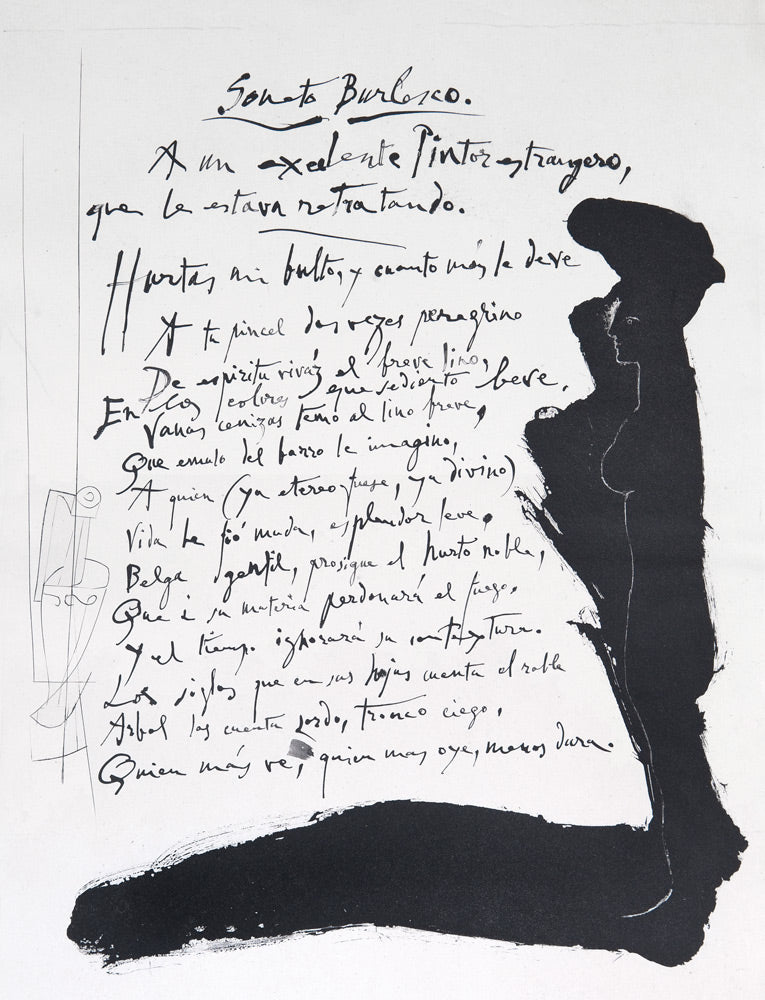 Soneto Burlesco.
A un exelente Pintor estrangero,
que le estava retratando.
Hurtas mi bulto, y cuanto más le deve
A tu pincel dos vezes peregrino
De espiritu viváz el breve lino,
En los colores que sediento beve,
Vanas cenizas temo al lino breve,
Que emulo del barro le imagino,
A quien (ya etereo fuese, ya divino)
Vida le fió muda, esplendor leve,
Belga gentil, prosigue el hurto noble,
Que a su materia perdonará el fuego,
Y el tiempo ignorará su contextura.
Los siglos que en sus hojas cuenta el roble
Arbol los cuenta sordo, tronco ciego,
Quien más ve, quien mas oye, menos dura.